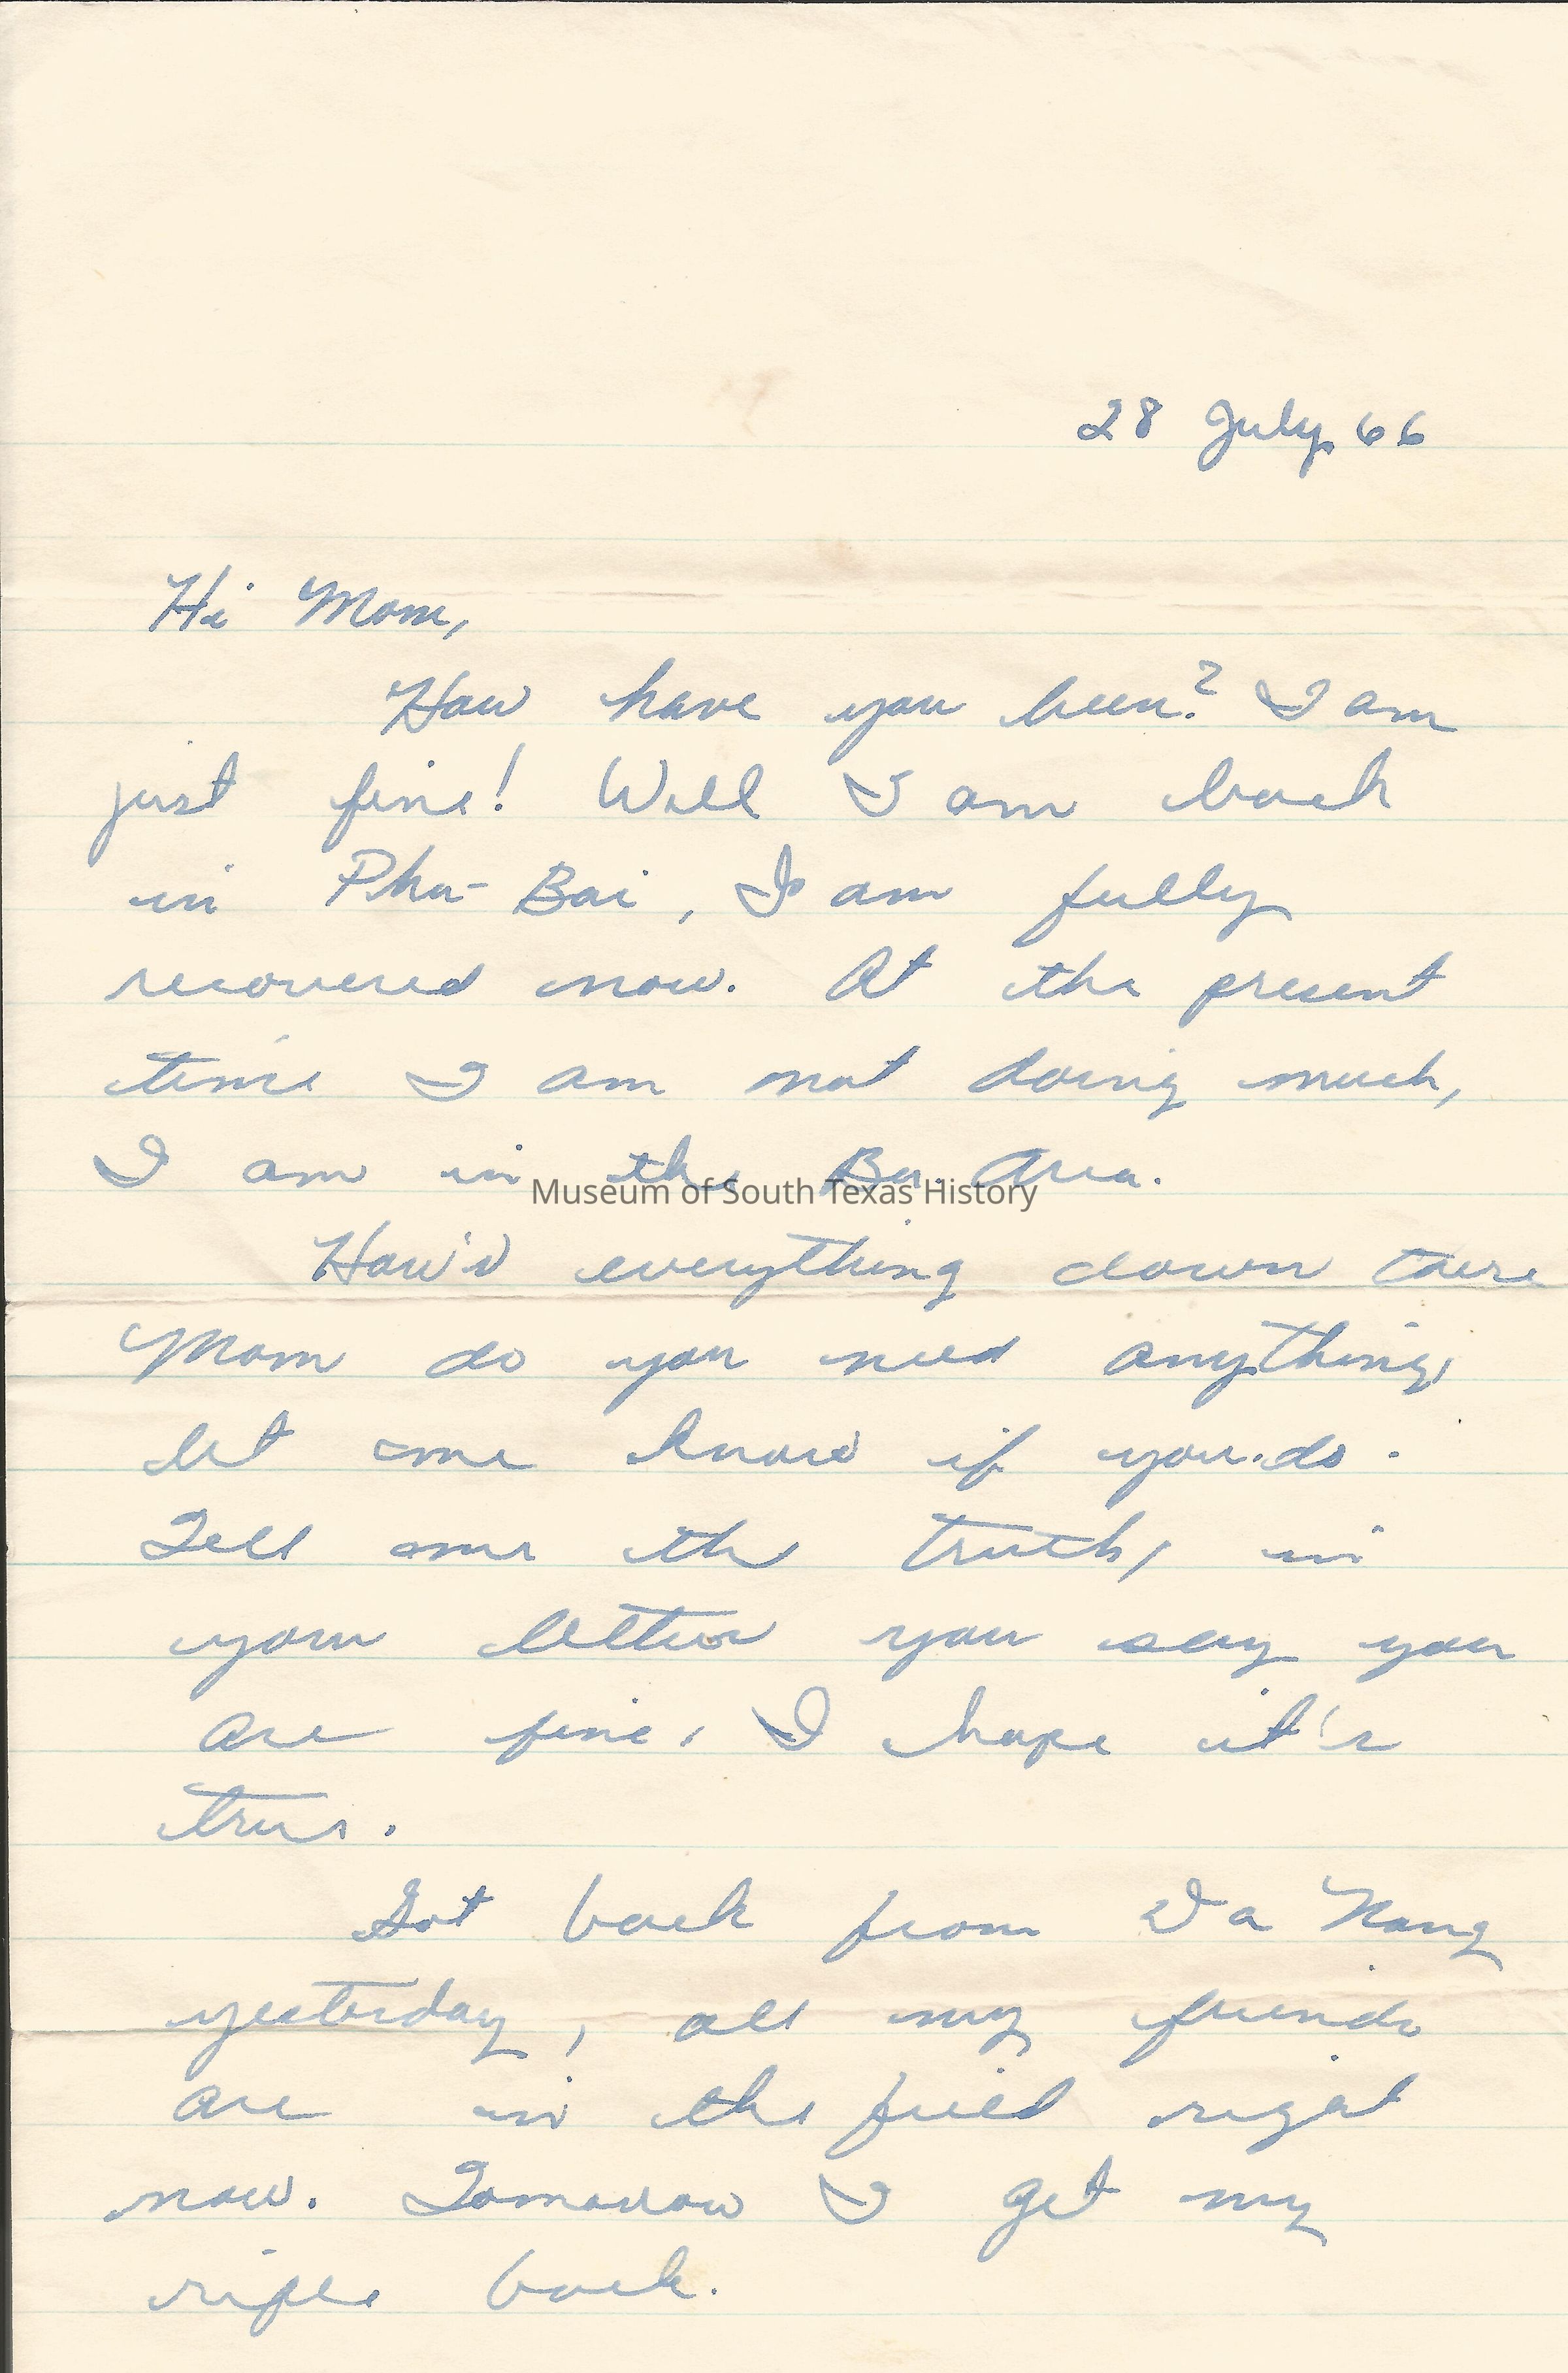 28 July 66
Hi Mom,
How have you been? I am
just fine! Well I am back
in Phu-Bai, I am fully
recovered now. At the present
time I am not doing much,
I am in the Bn. Area.
Museum of South Texas History
How's everything down there
Mom do you need anything,
let me know if you do.
Tell me the truth, in
your letters you say you
are fine, I hope it's
true.
Got back from Da Nang
yesterday, all my friends
are in the field right
now. Tomorrow I get my
rifle back.